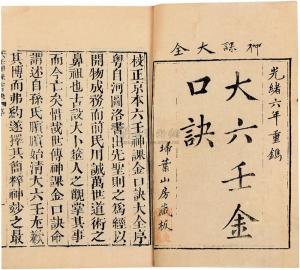 神課大全
光緒六年重鐫
大六壬金
口訣
掃葉山房藏板
校正京本六壬神課金口訣大全序
粵自河圖洛書出先聖則之為經以
開物成務而前民用誠萬世道術之
鼻祖也古設大卜筮人之觀掌其事
而今亡矣惜哉世傳神課金口訣命
謂述自孫氏臏始清大六壬
其博而弗約遂擇其簡粹神妙之最